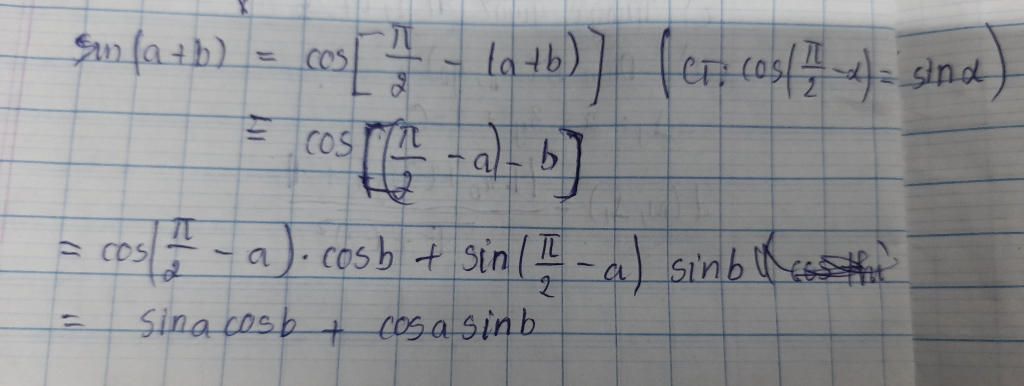 sin(a+b) = cos[π/2 - (a+b)] (CT: cos(π/2 - α) = sinα)
= cos[(π/2 - a) - b]
= cos(π/2 - a) . cosb + sin(π/2 - a) sinb
= sina cosb + cosa sinb